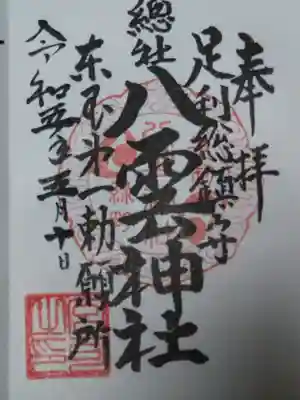 奉拝
足利総鎮守
總社
八雲神社
東国第一勅願所
令和五年五月十日